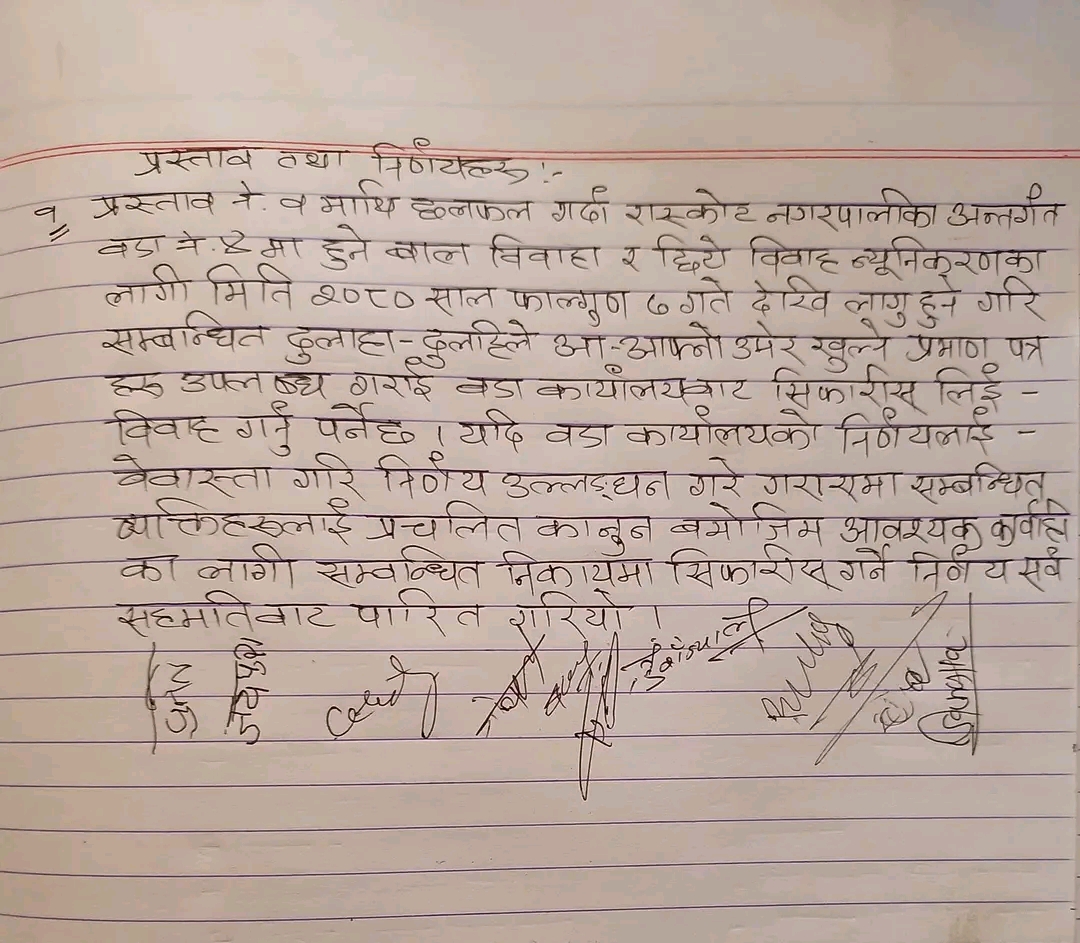 प्रस्ताव तथा निर्णयहरु :-
१ प्रस्ताव नं. १ माथि छलफल गर्दा रास्कोट नगरपालीका अन्तर्गत
वडा नं. ४ मा हुने बाल विवाहा र छिटो विवाह न्यूनिकरणका
लागी मिति २०८० साल फाल्गुण ७ गते देखि लागु हुने गरि
सम्बन्धित दुलाहा-दुलहिले आ-आफ्नो उमेर खुल्ने प्रमाण पत्र
हरु उपलब्ध गराई वडा कार्यालयबाट सिफारीस् लिई -
विवाह गर्नु पर्नेछ । यदि वडा कार्यालयको निर्णयलाई -
वेवास्ता गरि निर्णय उल्लङ्घन गरे गराएमा सम्बन्धित
ब्याक्तिहरुलाई प्रचलित कानुन बमोजिम आवश्यक कार्वाही
का लागी सम्वन्धित निकायमा सिफारीस् गर्ने निर्णय सर्व
सहमतिबाट पारित गरियो ।